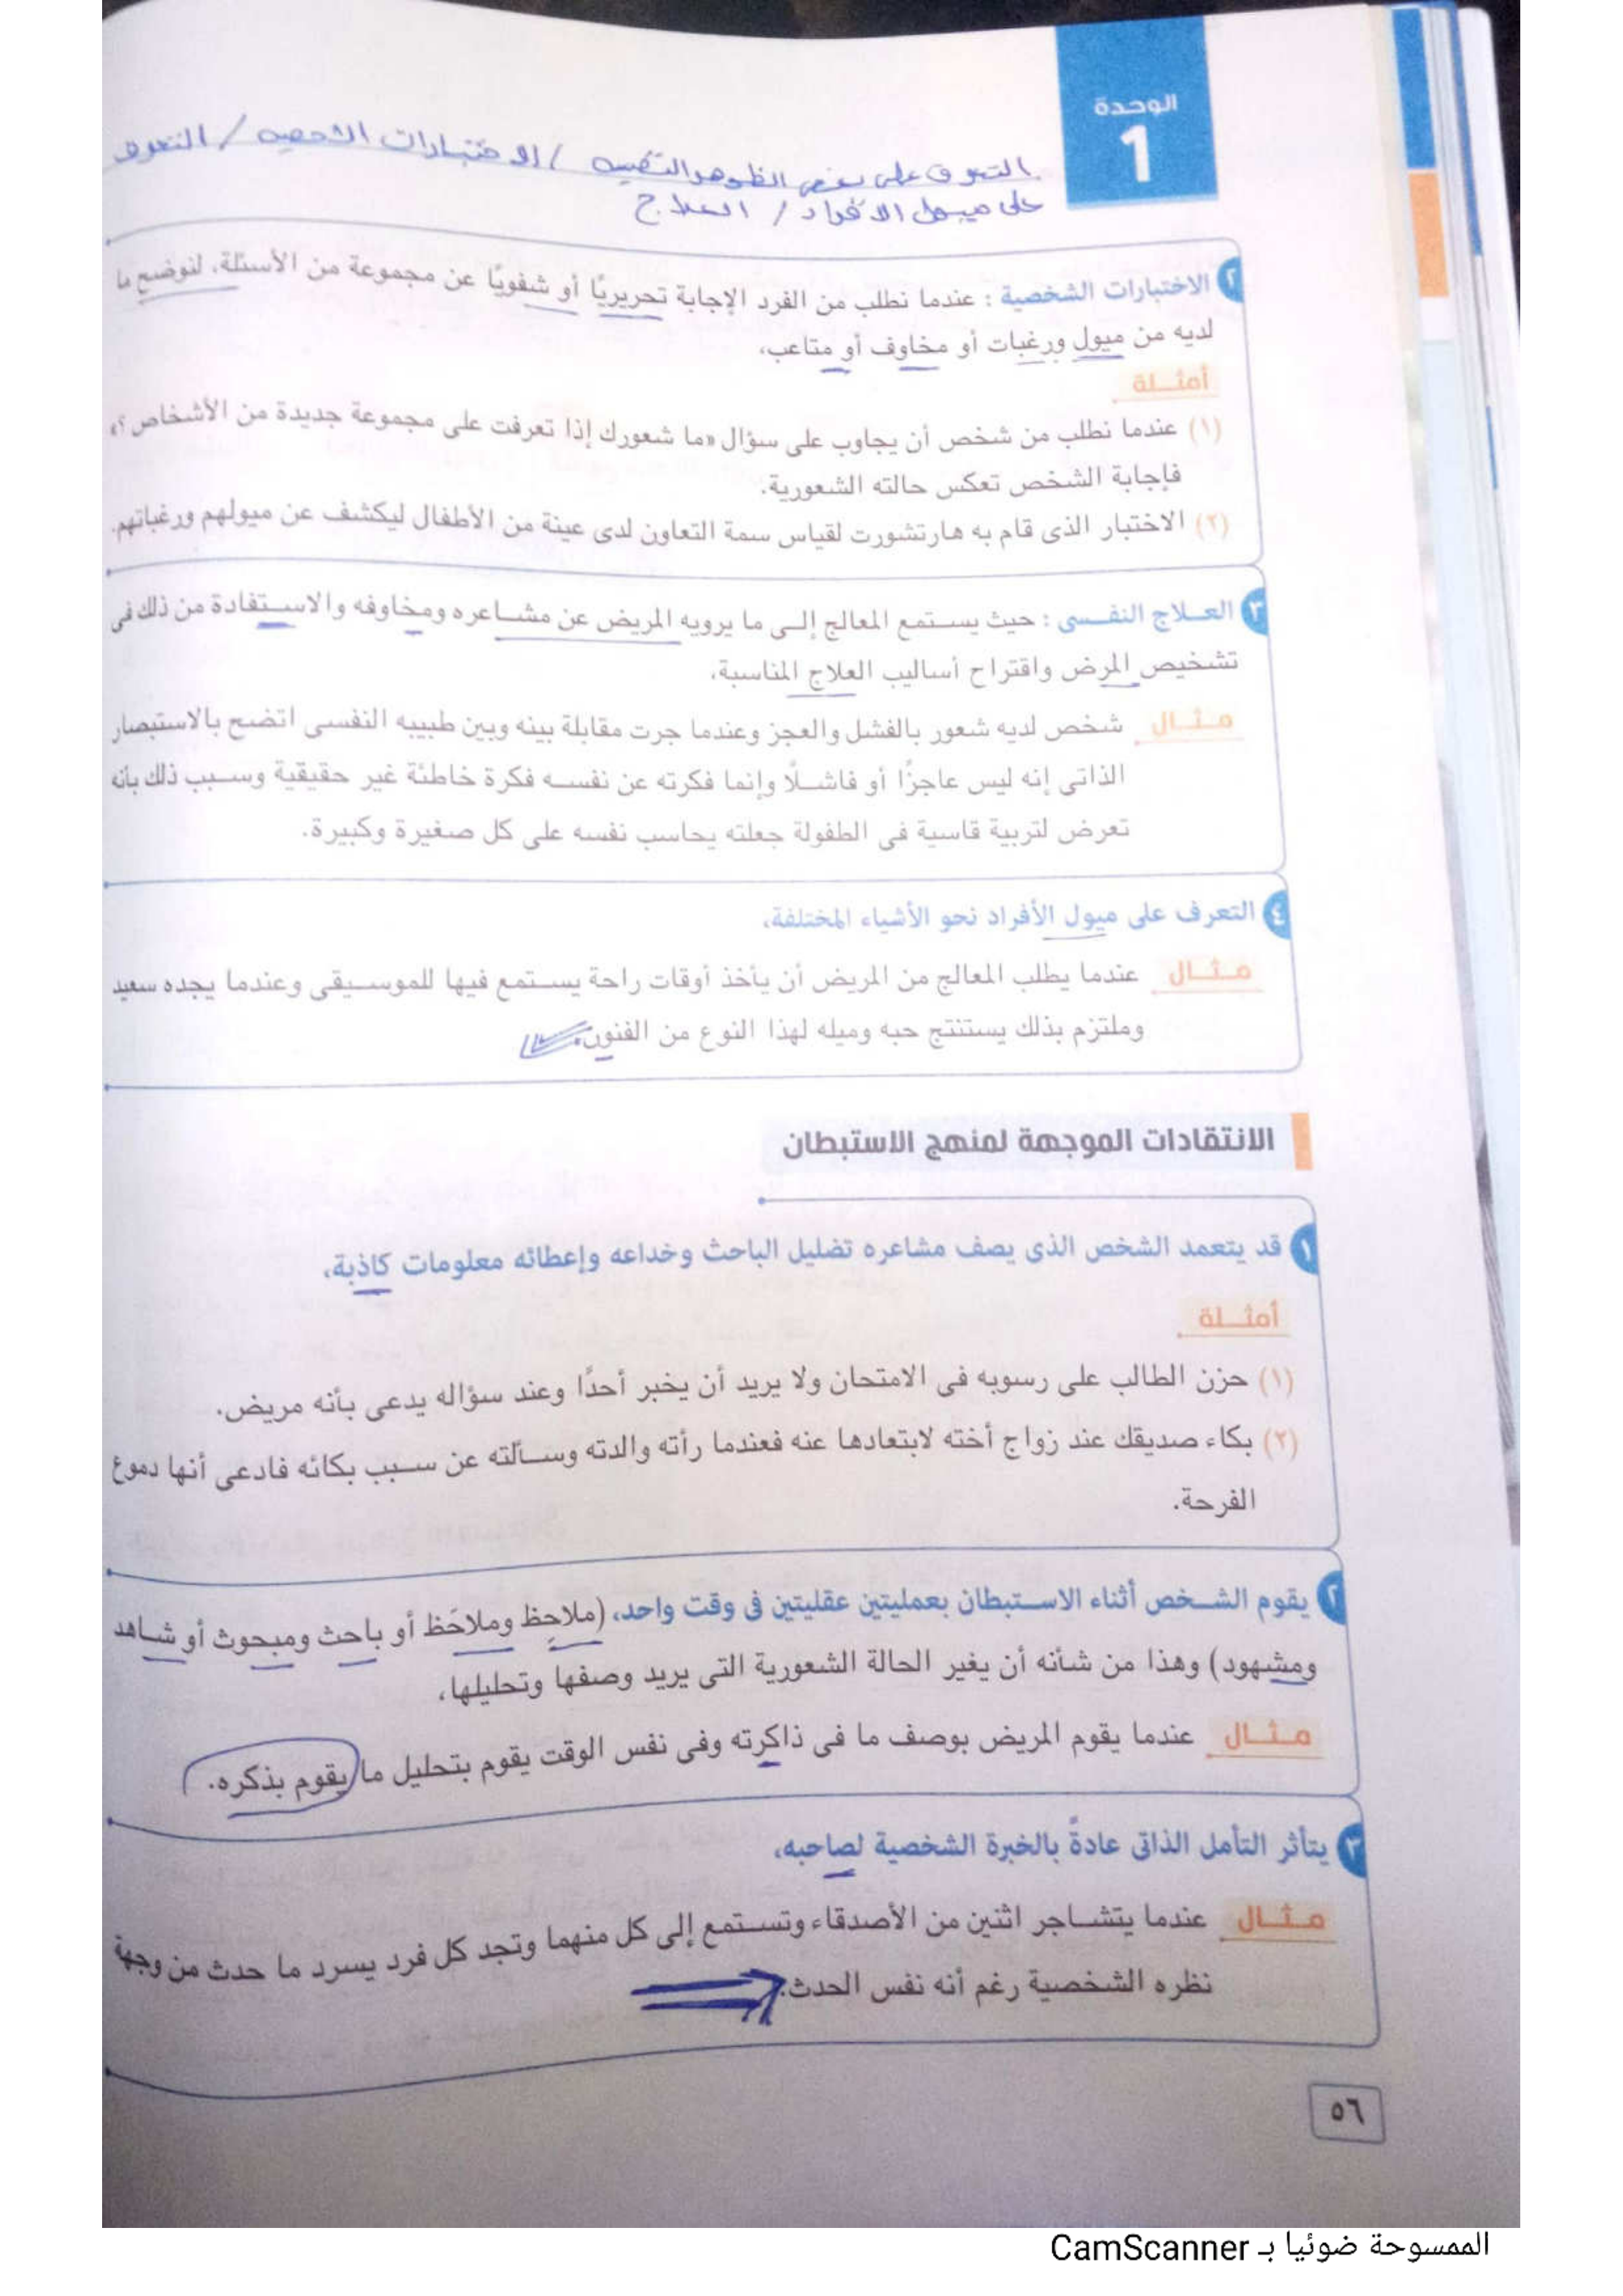 الوحدة
1
التعرف على بعض الظواهر النفسيه / الاختبارات الشخصيه / التعرف
على ميول الافراد / العلاج
٢ الاختبارات الشخصية : عندما نطلب من الفرد الإجابة تحريريًا أو شفويًا عن مجموعة من الأسئلة، لنوضح ما
لديه من ميول ورغبات أو مخاوف أو متاعب،
أمثـلة
(١) عندما نطلب من شخص أن يجاوب على سؤال «ما شعورك إذا تعرفت على مجموعة جديدة من الأشخاص ؟»
فإجابة الشخص تعكس حالته الشعورية.
(٢) الاختبار الذى قام به هارتشورت لقياس سمة التعاون لدى عينة من الأطفال ليكشف عن ميولهم ورغباتهم.
٣ العلاج النفسى : حيث يستمع المعالج إلى ما يرويه المريض عن مشاعره ومخاوفه والاستفادة من ذلك فى
تشخيص المرض واقتراح أساليب العلاج المناسبة،
مثـال شخص لديه شعور بالفشل والعجز وعندما جرت مقابلة بينه وبين طبيبه النفسى اتضح بالاستبصار
الذاتى إنه ليس عاجزًا أو فاشلًا وإنما فكرته عن نفسه فكرة خاطئة غير حقيقية وسبب ذلك بأنه
تعرض لتربية قاسية فى الطفولة جعلته يحاسب نفسه على كل صغيرة وكبيرة.
٤ التعرف على ميول الأفراد نحو الأشياء المختلفة،
مثـال عندما يطلب المعالج من المريض أن يأخذ أوقات راحة يستمع فيها للموسيقى وعندما يجده سعيد
وملتزم بذلك يستنتج حبه وميله لهذا النوع من الفنون.
الانتقادات الموجهة لمنهج الاستبطان
١ قد يتعمد الشخص الذى يصف مشاعره تضليل الباحث وخداعه وإعطائه معلومات كاذبة،
أمثـلة
(١) حزن الطالب على رسوبه فى الامتحان ولا يريد أن يخبر أحدًا وعند سؤاله يدعى بأنه مريض.
(٢) بكاء صديقك عند زواج أخته لابتعادها عنه فعندما رأته والدته وسألته عن سبب بكائه فادعى أنها دموع
الفرحة.
٢ يقوم الشخص أثناء الاستبطان بعمليتين عقليتين فى وقت واحد، (ملاحِظ وملاحَظ أو باحث ومبحوث أو شاهد
ومشهود) وهذا من شأنه أن يغير الحالة الشعورية التى يريد وصفها وتحليلها،
مثـال عندما يقوم المريض بوصف ما فى ذاكرته وفى نفس الوقت يقوم بتحليل ما يقوم بذكره.
٣ يتأثر التأمل الذاتى عادةً بالخبرة الشخصية لصاحبه،
مثـال عندما يتشاجر اثنين من الأصدقاء وتستمع إلى كل منهما وتجد كل فرد يسرد ما حدث من وجهة
نظره الشخصية رغم أنه نفس الحدث.
٥٦
الممسوحة ضوئيا بـ CamScanner